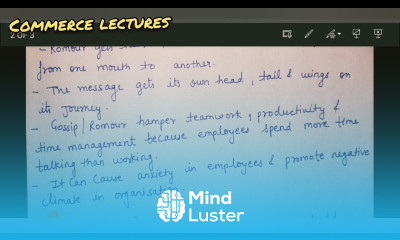 COMMERCE LECTURES
2 OF 3
- Romour gets
from one mouth to another.
- The message gets its own head, tail & wings on
its journey.
- Gossip/Romour hamper teamwork, productivity &
time management because employees spend more time
talking than working.
- It Can Cause anxiety in employees & promote negative
climate in organisation.
Mind
Luster